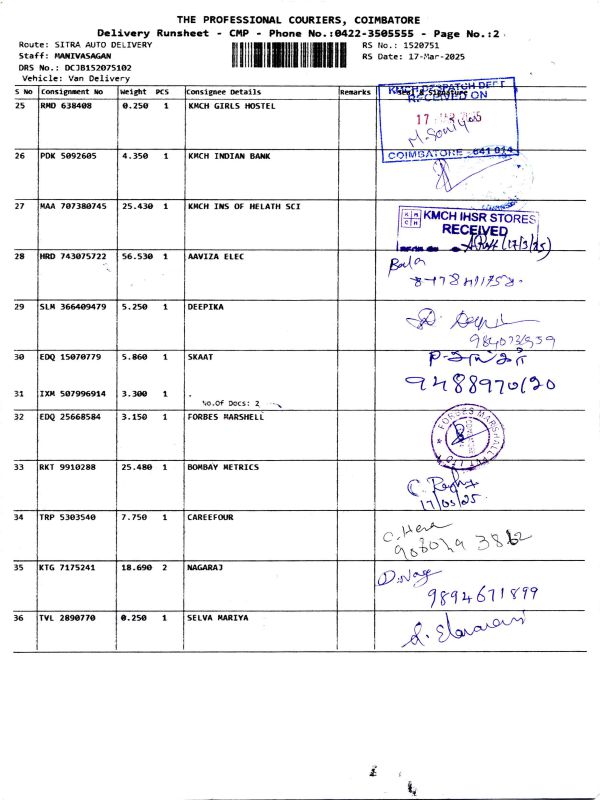 THE PROFESSIONAL COURIERS, COIMBATORE
Delivery Runsheet - CMP - Phone No.:0422-3505555 - Page No.:2
Route: SITRA AUTO DELIVERY
RS No.: 1520751
Staff: MANIVASAGAN
RS Date: 17-Mar-2025
DRS No.: DCJB152075102
Vehicle: Van Delivery
S No Consignment No Weight PCS Consignee Details Remarks Seal & Signature
25 RMD 638408 0.250 1 KMCH GIRLS HOSTEL
KMCH DESPATCH DEPT
RECEIVED ON
17 MAR 2025
COIMBATORE - 641 014
26 PDK 5092605 4.350 1 KMCH INDIAN BANK
27 MAA 707380745 25.430 1 KMCH INS OF HELATH SCI
KMCH IHSR STORES
RECEIVED
(17/3/25)
28 HRD 743075722 56.530 1 AAVIZA ELEC
29 SLM 366409479 5.250 1 DEEPIKA
30 EDQ 15070779 5.860 1 SKAAT
31 IXM 507996914 3.300 1
No.Of Docs: 2
9488970120
32 EDQ 25668584 3.150 1 FORBES MARSHELL
FORBES MARSHALL PVT LTD
33 RKT 9910288 25.480 1 BOMBAY METRICS
17/03/25
34 TRP 5303540 7.750 1 CAREEFOUR
C. Hera
35 KTG 7175241 18.690 2 NAGARAJ
D. Nage
9894671899
36 TVL 2890770 0.250 1 SELVA MARIYA